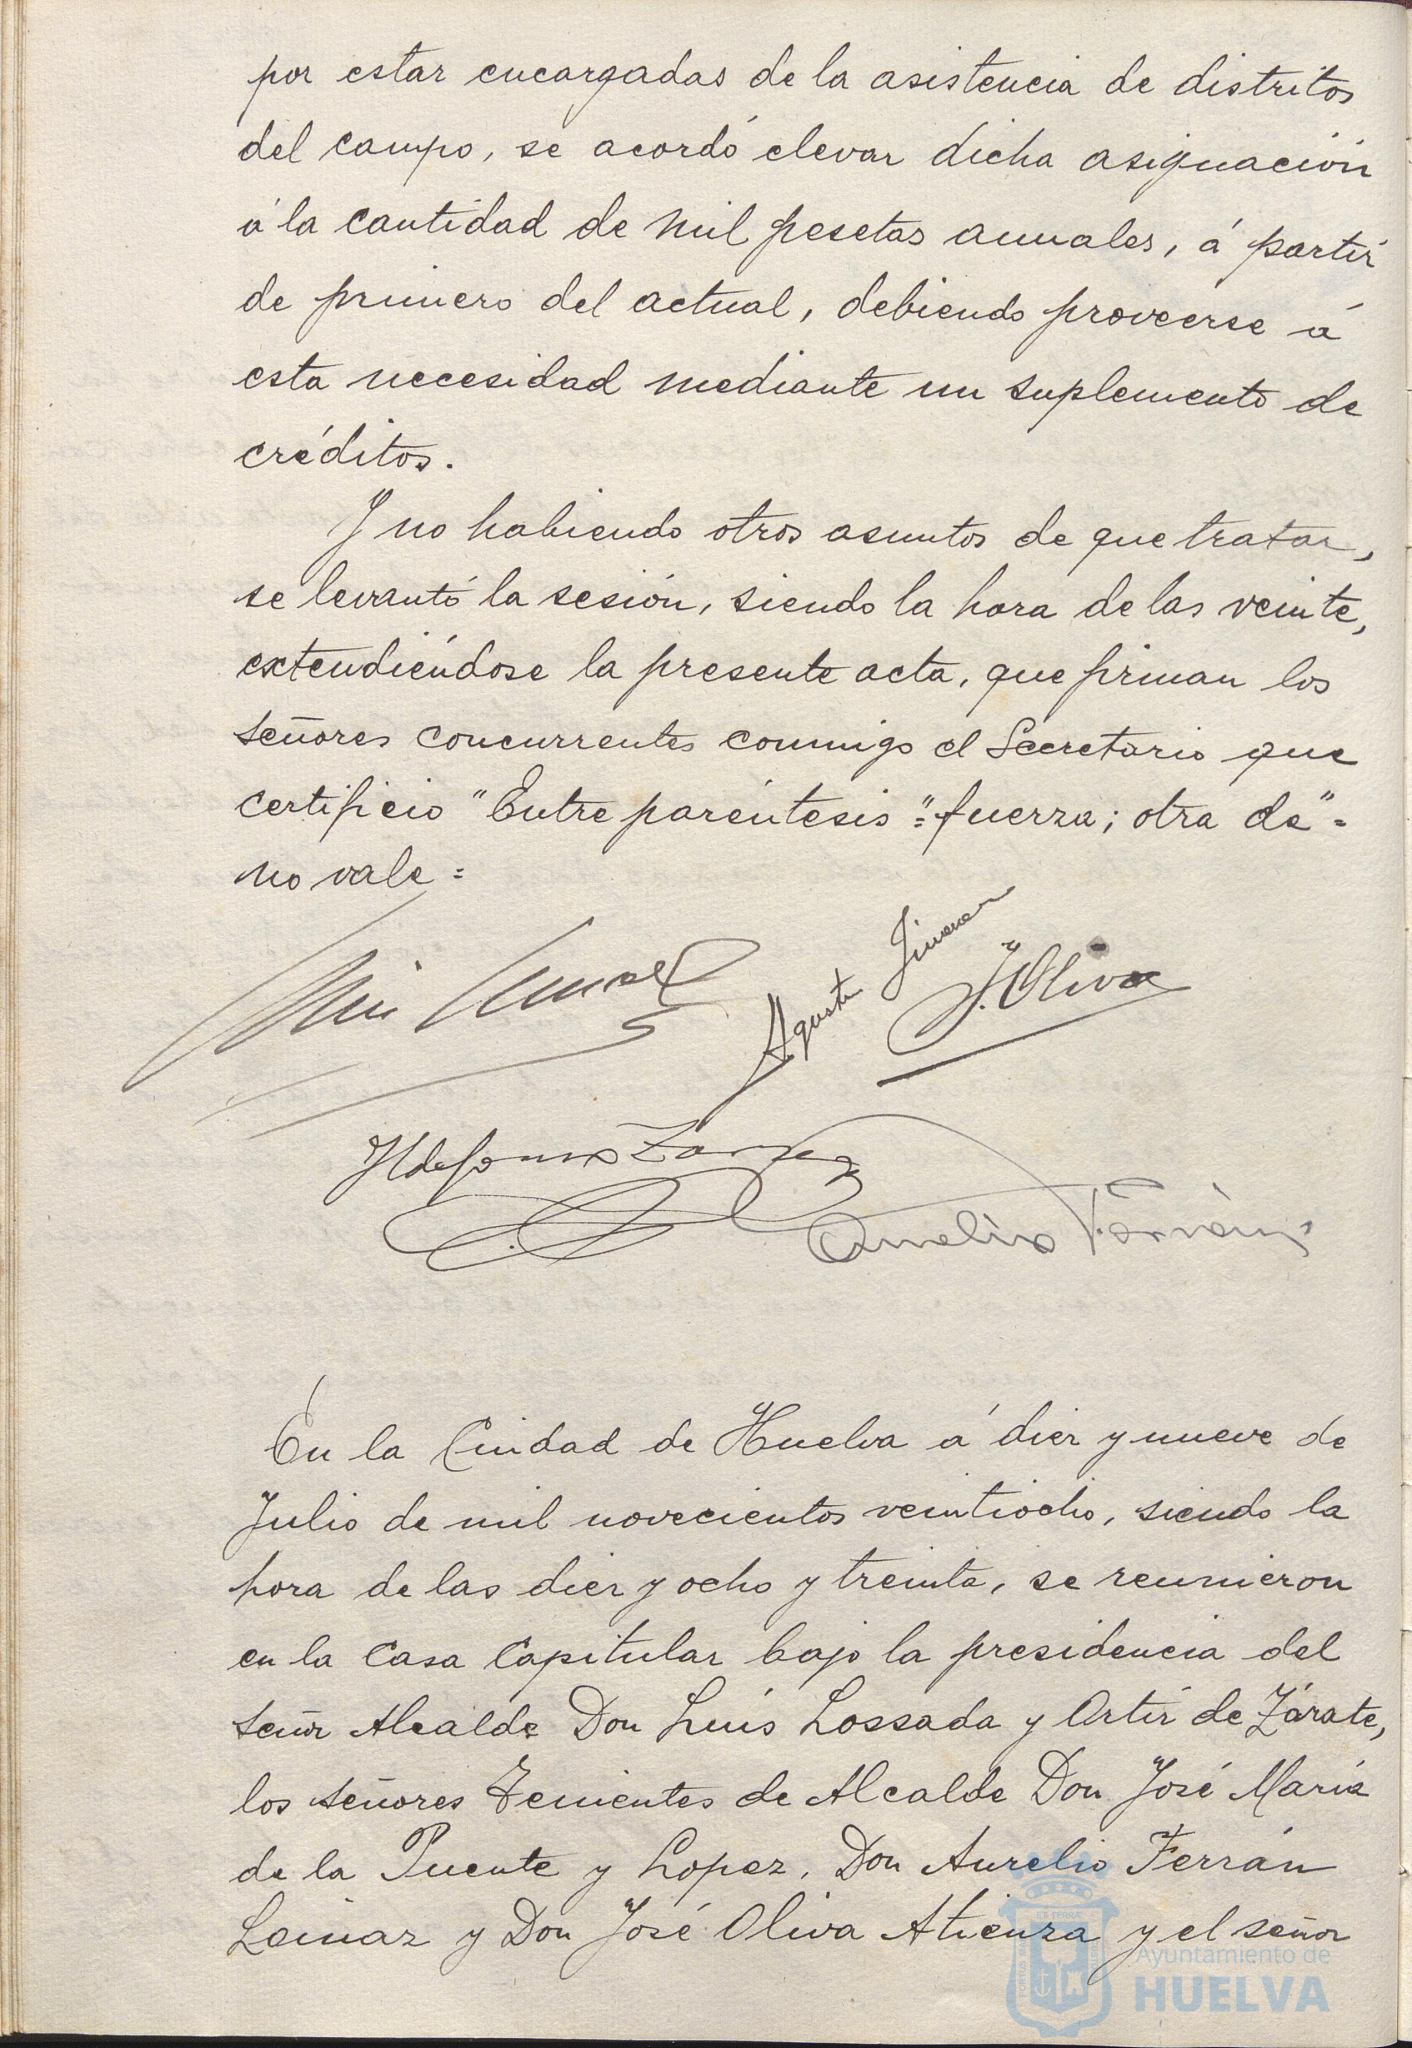 por estar encargadas de la asistencia de distritos
del campo, se acordó elevar dicha asignación
á la cantidad de mil pesetas anuales, á partir
de primero del actual, debiendo proveerse á
esta necesidad mediante un suplemento de
créditos.
Y no habiendo otros asuntos de que tratar,
se levantó la sesión, siendo la hora de las veinte,
extendiéndose la presente acta, que firman los
señores concurrentes conmigo el Secretario que
certificio "Entre paréntesis "= fuerza; otra de" =
no vale =
Agustín Jimenez
J. Oliva
Ildefonso
Aurelio Ferrán
En la Ciudad de Huelva á diez y nueve de
Julio de mil novecientos veintiocho, siendo la
hora de las diez y ocho y treinta, se reunieron
en la Casa Capitular bajo la presidencia del
señor Alcalde Don Luís Lossada y Ortíz de Zárate,
los señores Tenientes de Alcalde Don José María
de la Puente y Lopez, Don Aurelio Ferrán
y Don José Oliva Atienza y el señor
Ayuntamiento de
HUELVA